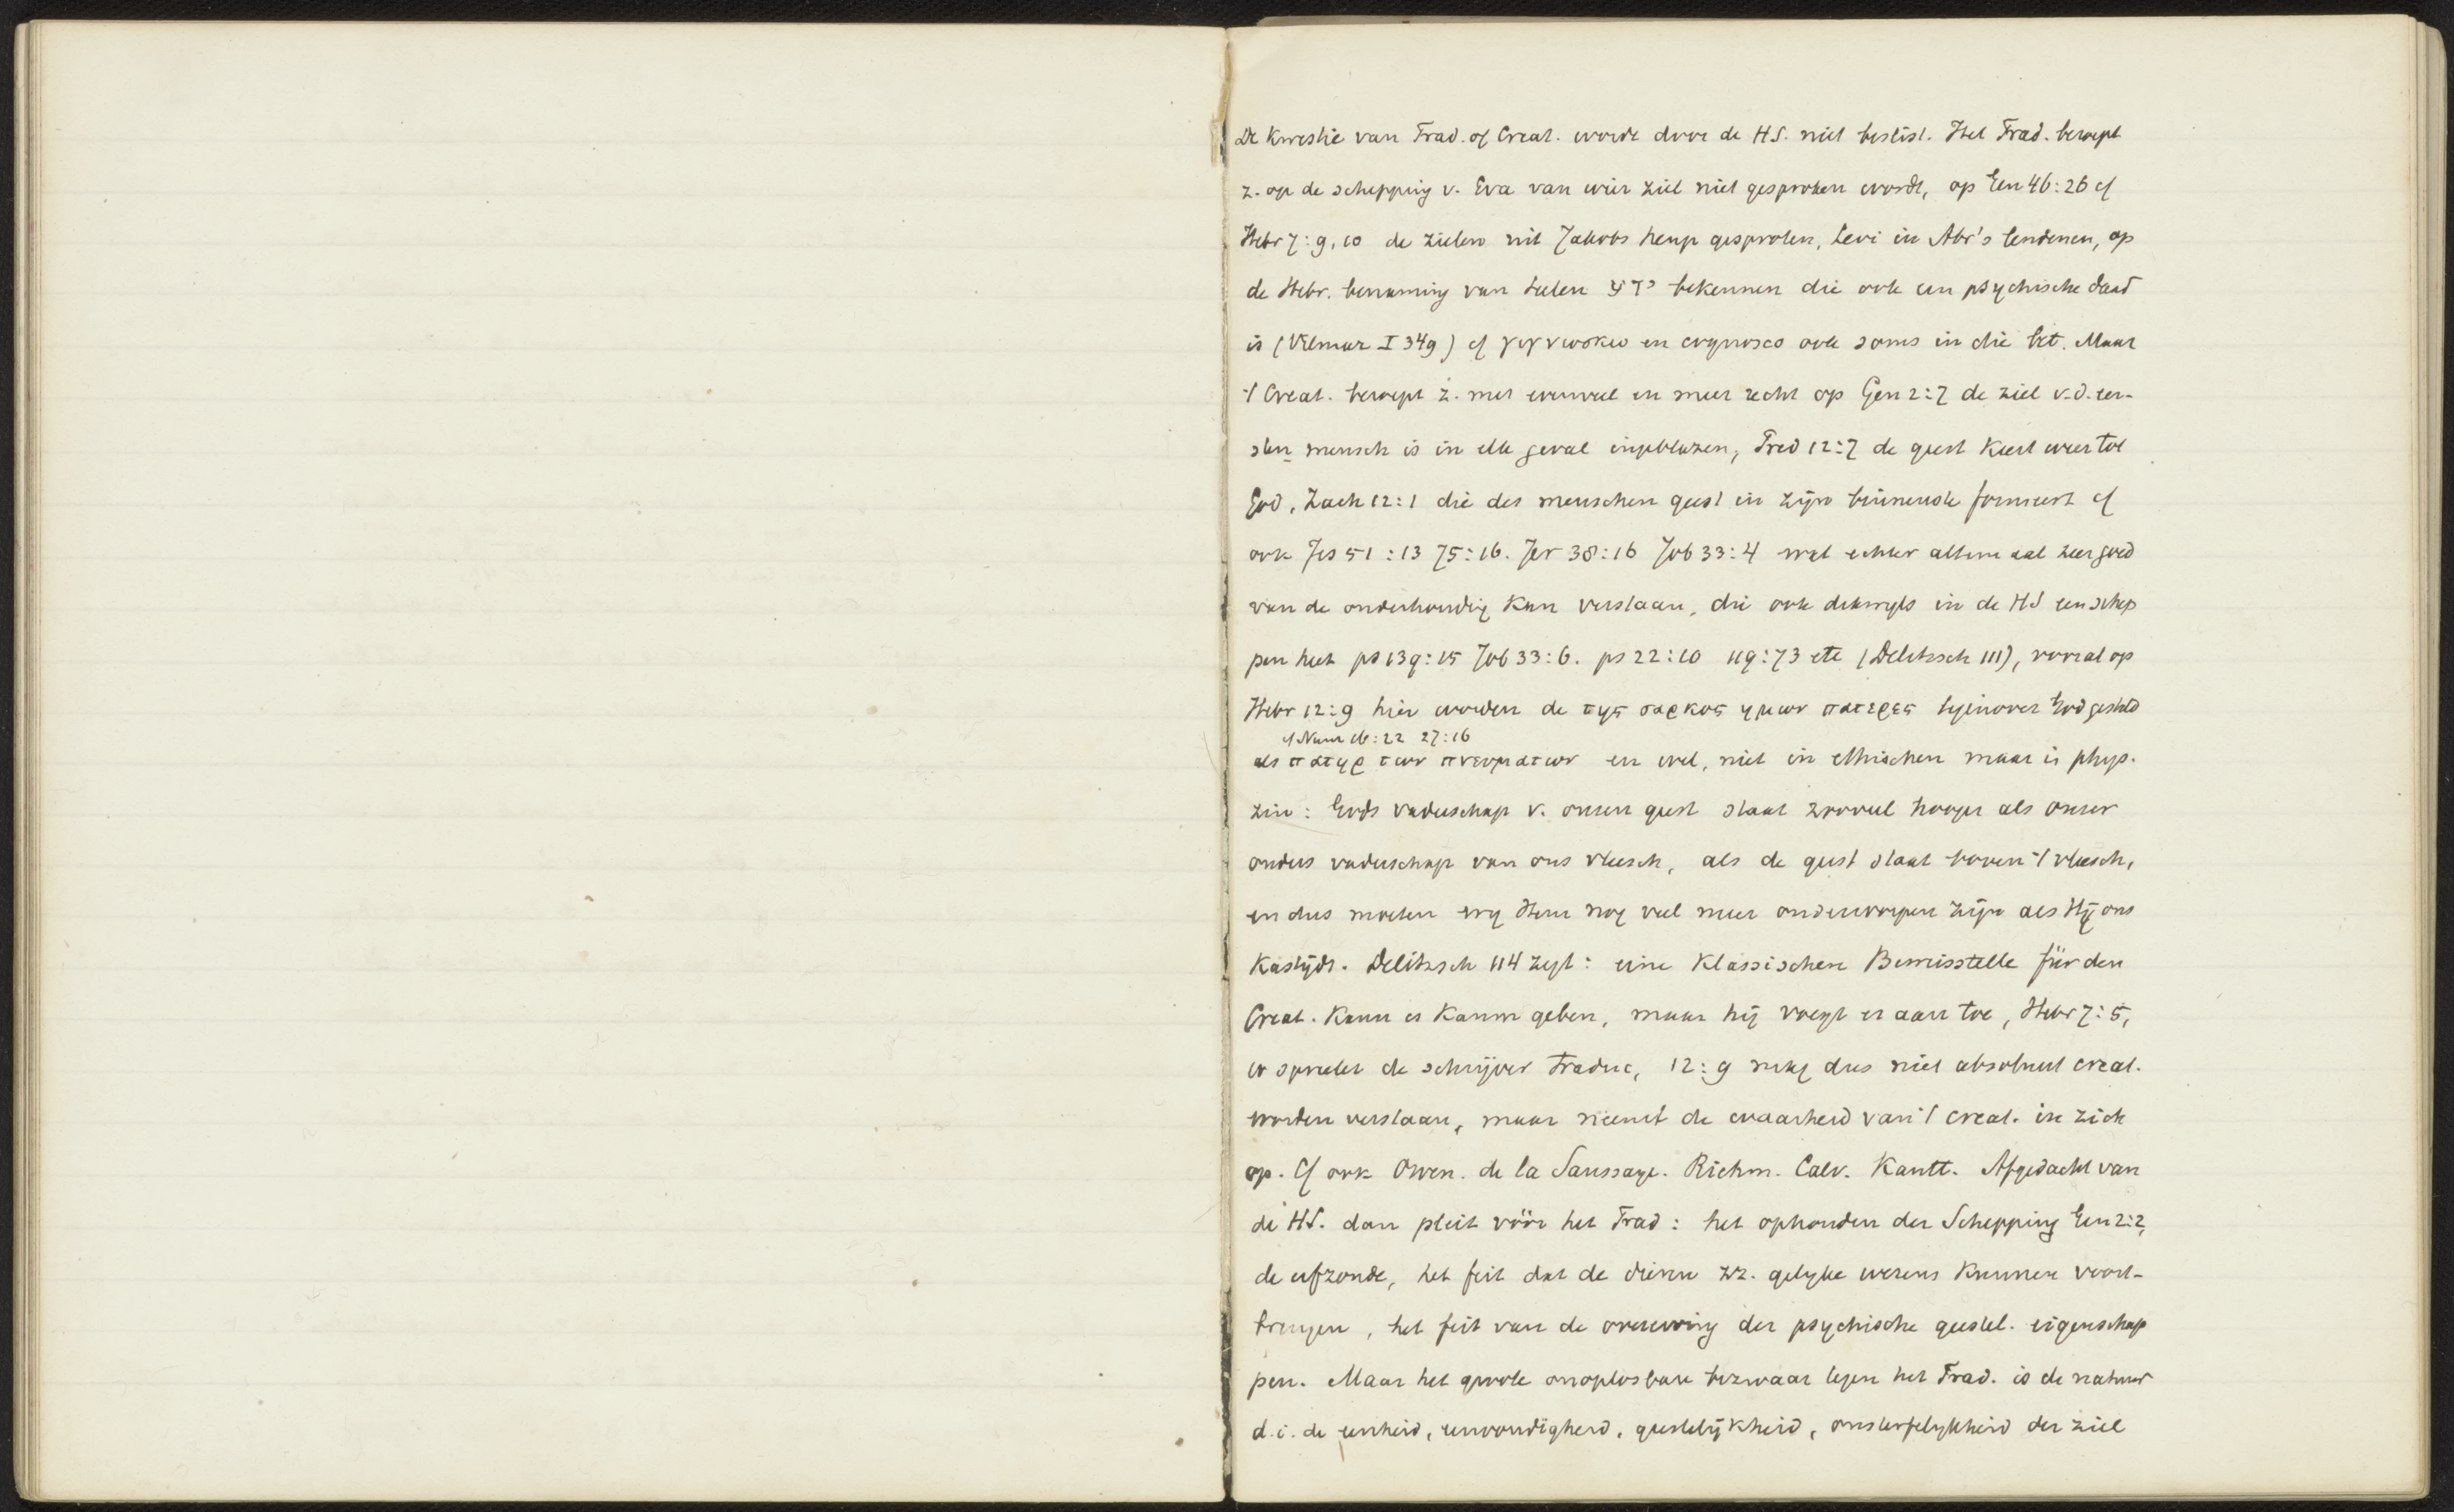 De kwestie van Trad. of Creat. wordt door de HS. niet beslist. Het Trad. beroept
z. op de schepping v. Eva van wier ziel niet gesproken wordt, op Gen 46:26 cf
Hebr 7:9,10 de zielen uit Jakobs heup gesproten, Levi in Abr's lendenen, op
de Hebr. benaming van telen ידע bekennen die ook een psychische daad
is (Vilmar I 349) cf γιγνωσκω en cognosco ook soms in die bet. Maar
't Creat. beroept z. met evenveel en meer recht op Gen 2:7 de ziel v.d. eer-
sten mensch is in elk geval ingeblazen, Pred 12:7 de geest keert weer tot
God, Zach 12:1 die des menschen geest in zijn binnenste formeert cf
ook Jes 51:13 75:16. Jer 38:16 Job 33:4 wat echter altemaal zeer goed
van de onderhouding kan verstaan, die ook dikwyls in de HS een schep
pen heet ps 139:15 Job 33:6. ps 22:10 119:73 etc (Delitzsch 111), vooral op
Hebr 12:9 hier worden de της σαρκος ημων πατερες tegenover God gesteld
cf Num 16:22 27:16
als πατηρ των πνευματων en wel, niet in ethischen maar in phys.
zin: Gods vaderschap v. onzen geest staat zooveel hooger als onzer
ouders vaderschap van ons vleesch, als de geest staat boven 't vleesch,
en dus moeten wy Hem nog veel meer onderworpen zijn als Hij ons
kastijdt. Delitzsch 114 zegt: eine klassischere Beweisstelle für den
Creat. kann es kaum geben, maar hij voegt er aan toe, Hebr 7:5,
er spreekt de schrijver traduc, 12:9 mag dus niet absoluut creat.
worden verstaan, maar neemt de waarheid van 't creat. in zich
op. Cf ook Owen. de la Saussaye. Riehm. Calv. Kantt. Afgedacht van
de HS. dan pleit vóór het Trad: het ophouden der Schepping Gen 2:2,
de erfzonde, het feit dat de dieren zz. gelyke wezens kunnen voort-
brengen, het feit van de overerving der psychische geestel. eigenschap
pen. Maar het groote onoplosbare bezwaar tegen het Trad. is de natuur
d.i. de eenheid, eenvoudigheid, geestelijkheid, onsterfelykheid der ziel